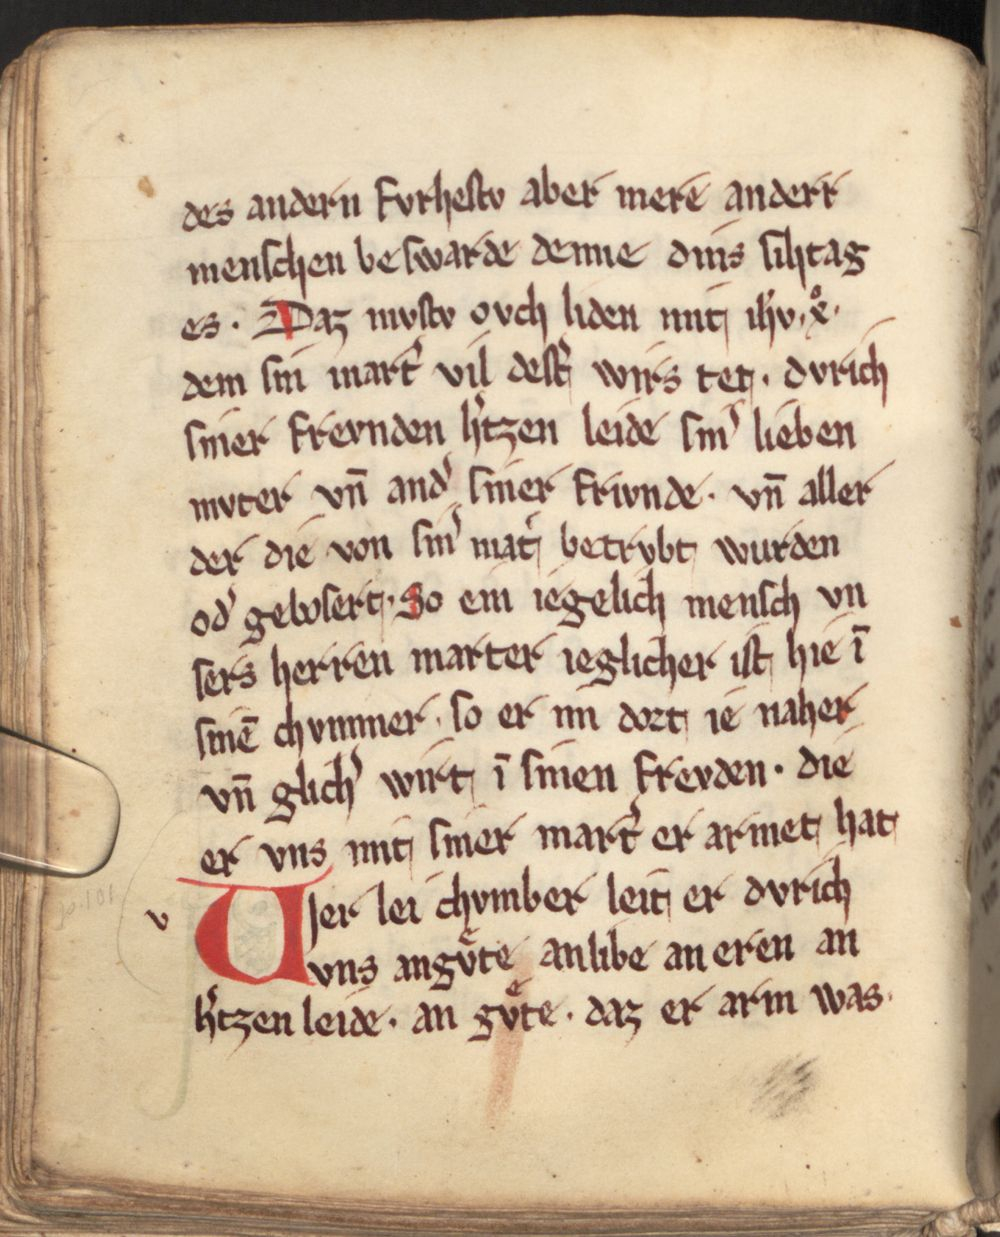 des andern Fvrhestv aber mere anderr
menschen beswarde denne dins sihtag
es · Daz mvstv ovch liden mit ih'v · x° ·
dem sin mart' vil dest' wirs tet · dvrich
siner Frevnden h'tzen leide sin' lieben
mvter vn̄ and' siner Frivnde · vn̄ aller
der die von sin' mat' betrvbt wurden
od' gebosert · So ein iegelich mensch vn
sers herren marter ieglicher ist hie ī
sinē chvmmer · so er im dort ie naher
vn̄ glich' wirt ī sinen Frevden · die
er vns mit siner mart' er armet hat
v Vier lei chvmber leit er dvrich
vns an gvͤte an libe an eren an
h'tzen leide · an gvͤte · daz er arm was ·